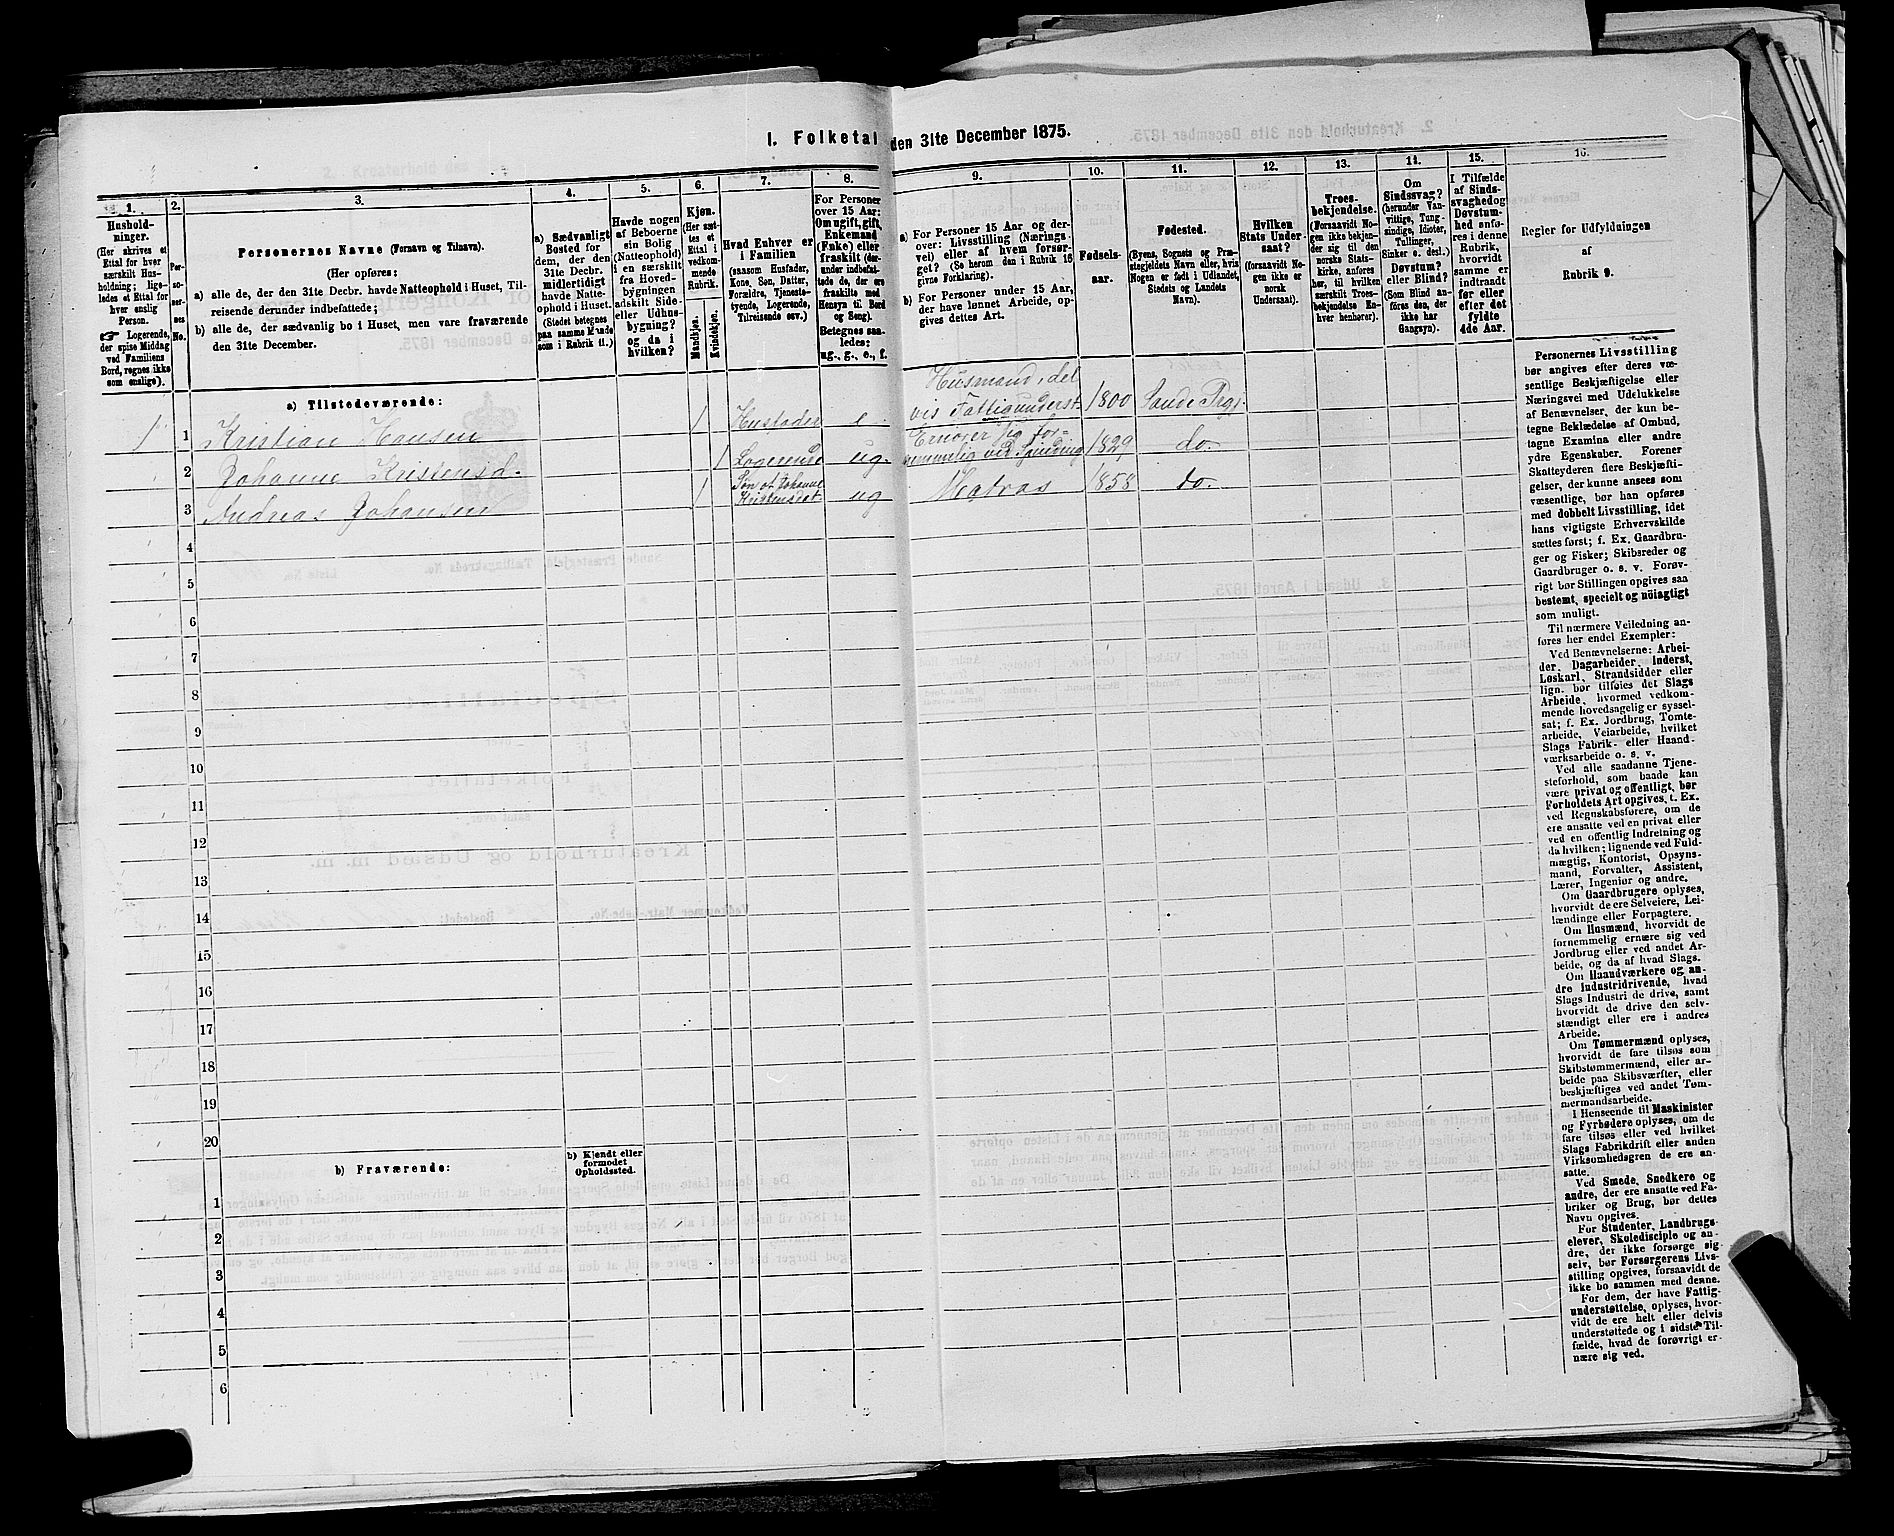 I. Folketal den 31te December 1875.
1.
2.
3.
4.
5.
6.
7.
8.
9.
10.
11.
12.
13.
14.
15.
16.
Hushold-
ninger.
(Her skrives et
Ettal for hver
særskilt Hus-
holdning; lige-
ledes et Ettal for
hver enslig
Person.
Logerende,
der spise Middag
ved Familiens
Bord, regnes ikke
som enslige).
Per-
so-
ner-
nes
No.
Personernes Navne (Fornavn og Tilnavn).
(Her opføres:
a) alle de, der den 31te Decbr. havde Natteophold i Huset, Til-
reisende derunder indbefattede;
b) alle de, der sædvanlig bo i Huset, men vare fraværende
den 31te December.
a) Sædvanligt
Bosted for
dem, der den
31te Decbr.
midlertidigt
havde Natte-
ophold i Huset.
(Stedet betegnes
paa samme Maade
som i Rubrik 11.)
Havde nogen
af Beboerne
sin Bolig
(Natteophold)
i en særskilt
fra Hoved-
bygningen
adskilt Side-
eller Udhus-
bygning?
og da i
hvilken?
Kjøn.
(Her sæt-
tes et
Ettal i
vedkom-
mende
Rubrik.
Mandkjøn.
Kvindekjøn.
Hvad Enhver er
i Familien
(saasom Husfader,
Kone, Søn, Datter,
Forældre, Tjeneste-
tyende, Logerende,
Tilreisende osv.)
For Personer
over 15 Aar:
Om ugift, gift,
Enkemand
(Enke) eller
fraskilt (der-
unde indbefat-
tede de, der ere
fraskilte med
Hensyn til Bord
og Seng).
Betegnes saa-
ledes:
ug., g., e., f.
a) For Personer 15 Aar og der-
over: Livsstilling (Nærings-
vei) eller af hvem forsør-
get? (Se herom den i Rubrik 16
givne Forklaring).
b) For Personer under 15 Aar,
der have lønnet Arbeide, op-
gives dettes Art.
Fødsels-
aar.
Fødested.
(Byens, Sognets og Præ-
stegjeldets Navn eller, hvis
Nogen er født i Udlandet,
Stedets og Landets
Navn).
Hvilken
Stats Under-
saat?
(forsaavidt No-
gen ikke er
norsk
Undersaat).
Troes-
bekjendelse.
(Forsaavidt No-
gen ikke bekjen-
der sig til den
norske Stats-
kirke, anføres
her, til hvilken
særskilt Troes-
bekjendelse En-
hver henhører).
Om
Sindssvag?
(herunder Van-
vittige, Tung-
sindige, Idioter,
Tullinger,
Sinker o. desl.)
Døvstum?
eller Blind?
(Som Blind an-
føres den, der
ikke har
Gangsyn).
I Tilfælde
af Sinds-
svaghed og
Døvstum-
hed anfø-
res i denne
Rubrik,
hvorvidt
samme er
indtraadt
før eller
efter det
fyldte
4de Aar.
Regler for Udfyldningen
af
Rubrik 9.
a) Tilstedeværende:
1 1 Kristian Hansen 1 Husfader e. Husmand, del
vis Fattigunderst. 1800 Sande Prgj.
2 Johanne Kristensd. 1 Logerende ug. Ernører sig for-
nemmelig ved Spinding 1829 do.
3 Andreas Johansen 1 Søn af Johanne
Kristensdat ug Matros 1858 do.
4
5
6
7
8
9
10
11
12
13
14
15
16
17
18
19
20
b) Fraværende:
b) Kjendt eller
formodet
Opholdssted.
1
2
3
4
5
6
Personernes Livsstilling
bør angives efter deres væ-
sentlige Beskjæftigelse eller
Næringsvei med Udelukkelse
af Benævnelser, der kun be-
tegne Beklædelse af Ombud,
tagne Examina eller andre
ydre Egenskaber. Forener
Skatteyderen flere Beskjæfti-
gelser, der kunne ansees som
væsentlige, bør han opføres
med dobbelt Livsstilling, idet
hans vigtigste Erhvervskilde
sættes først; f. Ex. Gaardbru-
ger og Fisker; Skibsreder og
Gaardbruger o. s. v. Forøv-
rigt bør Stillingen opgives saa
bestemt, specielt og nöiagtigt
som muligt.
Til nærmere Veiledning an-
føres her endel Exempler:
Ved Benævnelserne: Arbei-
der, Dagarbeider, Inderst,
Løskarl, Strandsidder eller
lign. bør tilføies det Slags
Arbeide, hvormed vedkom-
mende hovedsagelig er syssel-
sat; f. Ex. Jordbrug, Tomte-
arbeide, Veiarbeide, hvilket
Slags Fabrik- eller Haand-
værksarbeide o. s. v.
Ved alle saadanne Tjene-
steforhold, som baade kan
være privat og offentligt, bør
Forholdets Art opgives, t. Ex.
ved Regnskabsførere, om de
ere ansatte ved en privat eller
ved en offentlig Indretning og
da hvilken; lignende ved Fuld-
mægtig, Kontorist, Opsyns-
mand, Forvalter, Assistent,
Lærer, Ingeniør og andre.
Om Gaardbrugere oplyses,
hvorvidt de ere Selveiere, Lei-
lændinge eller Forpagtere.
Om Husmænd, hvorvidt de
fornemmelig ernære sig ved
Jordbrug eller ved andet Ar-
beide, og da af hvad Slags.
Om Haandværkere og an-
dre Industridrivende, hvad
Slags Industri de drive, samt
hvorvidt de drive den selv-
stændigt eller ere i andres
Arbeide.
Om Tømmermænd oplyses,
hvorvidt de fare tilsøs som
Skibstømmermænd, eller ar-
beide paa Skibsværfter, eller
beskjæftiges ved andet Tøm-
mermandsarbeide.
I Henseende til Maskinister
og Fyrbødere oplyses, om de
fare tilsøs eller ved hvilket
Slags Fabrikdrift eller anden
Virksomhedsgren de ere an-
satte.
Ved Smede, Snedkere og
andre, der ere ansatte ved Fa-
briker og Brug, bør dettes
Navn opgives.
For Studenter, Landbrugs-
elever, Skoledisciple og an-
dre, der ikke forsørge sig
selv, bør Forsørgerens Livs-
stilling opgives, forsaavidt de
ikke bo sammen med denne.
For dem, der have Fattig-
understøttelse, oplyses, hvor-
vidt de ere helt eller delvis
understøttede og i sidste Til-
fælde, hvad de forøvrigt er-
nære sig ved.